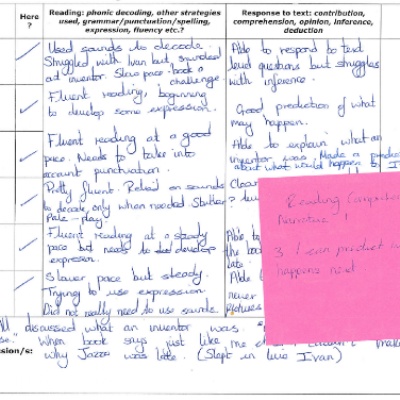 Here ?
Reading: phonic decoding, other strategies used, grammar/punctuation/spelling, expression, fluency etc.?
Response to text: contribution, comprehension, opinion, inference, deduction
Used sounds to decode.
Struggled with Ivan but sounded
out inventor. Slow pace - book a
challenge.
Able to respond to text
level questions but struggles
with inference.
Fluent reading, beginning
to develop some expression.
Good prediction of what
may happen.
Fluent reading at a good
pace. Needs to take into
account punctuation.
Able to explain what an
inventor was. Made a
about what would happen to I
Pretty fluent. Relied on sounds
to decode only when needed
Pale - play.
Clear
Fluent reading at a steady
pace but needs to develop
expression.
Able to
the boo
late.
Slower pace but steady.
Trying to use expression.
Did not really need to use sounds.
Able
never
pictures
Reading Comprehen
Narrative !
3 I can predict w
happens next
All discussed what an inventor was.
When book says just like me
sion/s:
why Jazza was late. (Slept in Ivan)